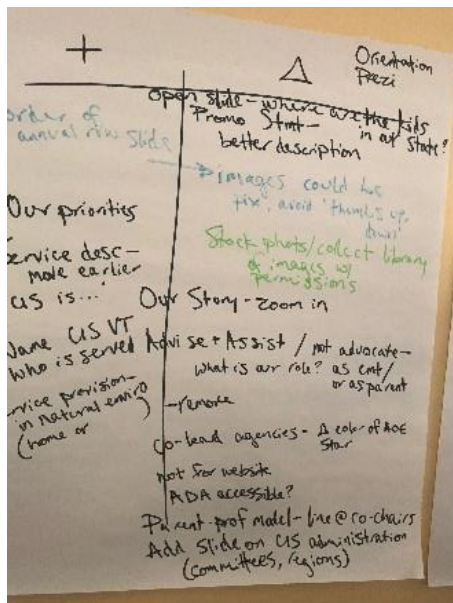 +
Δ
Orientation
Prezi
order of
annual rvw slide
Our priorities
service desc-
more earlier
CIS is...'
Name CIS VT
who is served
service provision-
in natural enviro
(home or
Open slide - where are the kids
in our state?
Promo Stmt-
better description
images could be
pix, avoid 'thumbs up,
down'
Stock photos/collect library
of images w/
permissions
Our Story - zoom in
Advise + Assist / not advocate-
what is our role? as cmt/
or as parent
-remove
co-lead agencies - Δ color of AOE
Star
not for website
ADA accessible?
Parent-prof model-line @ co-chairs
Add slide on CIS administration
(committees, regions)